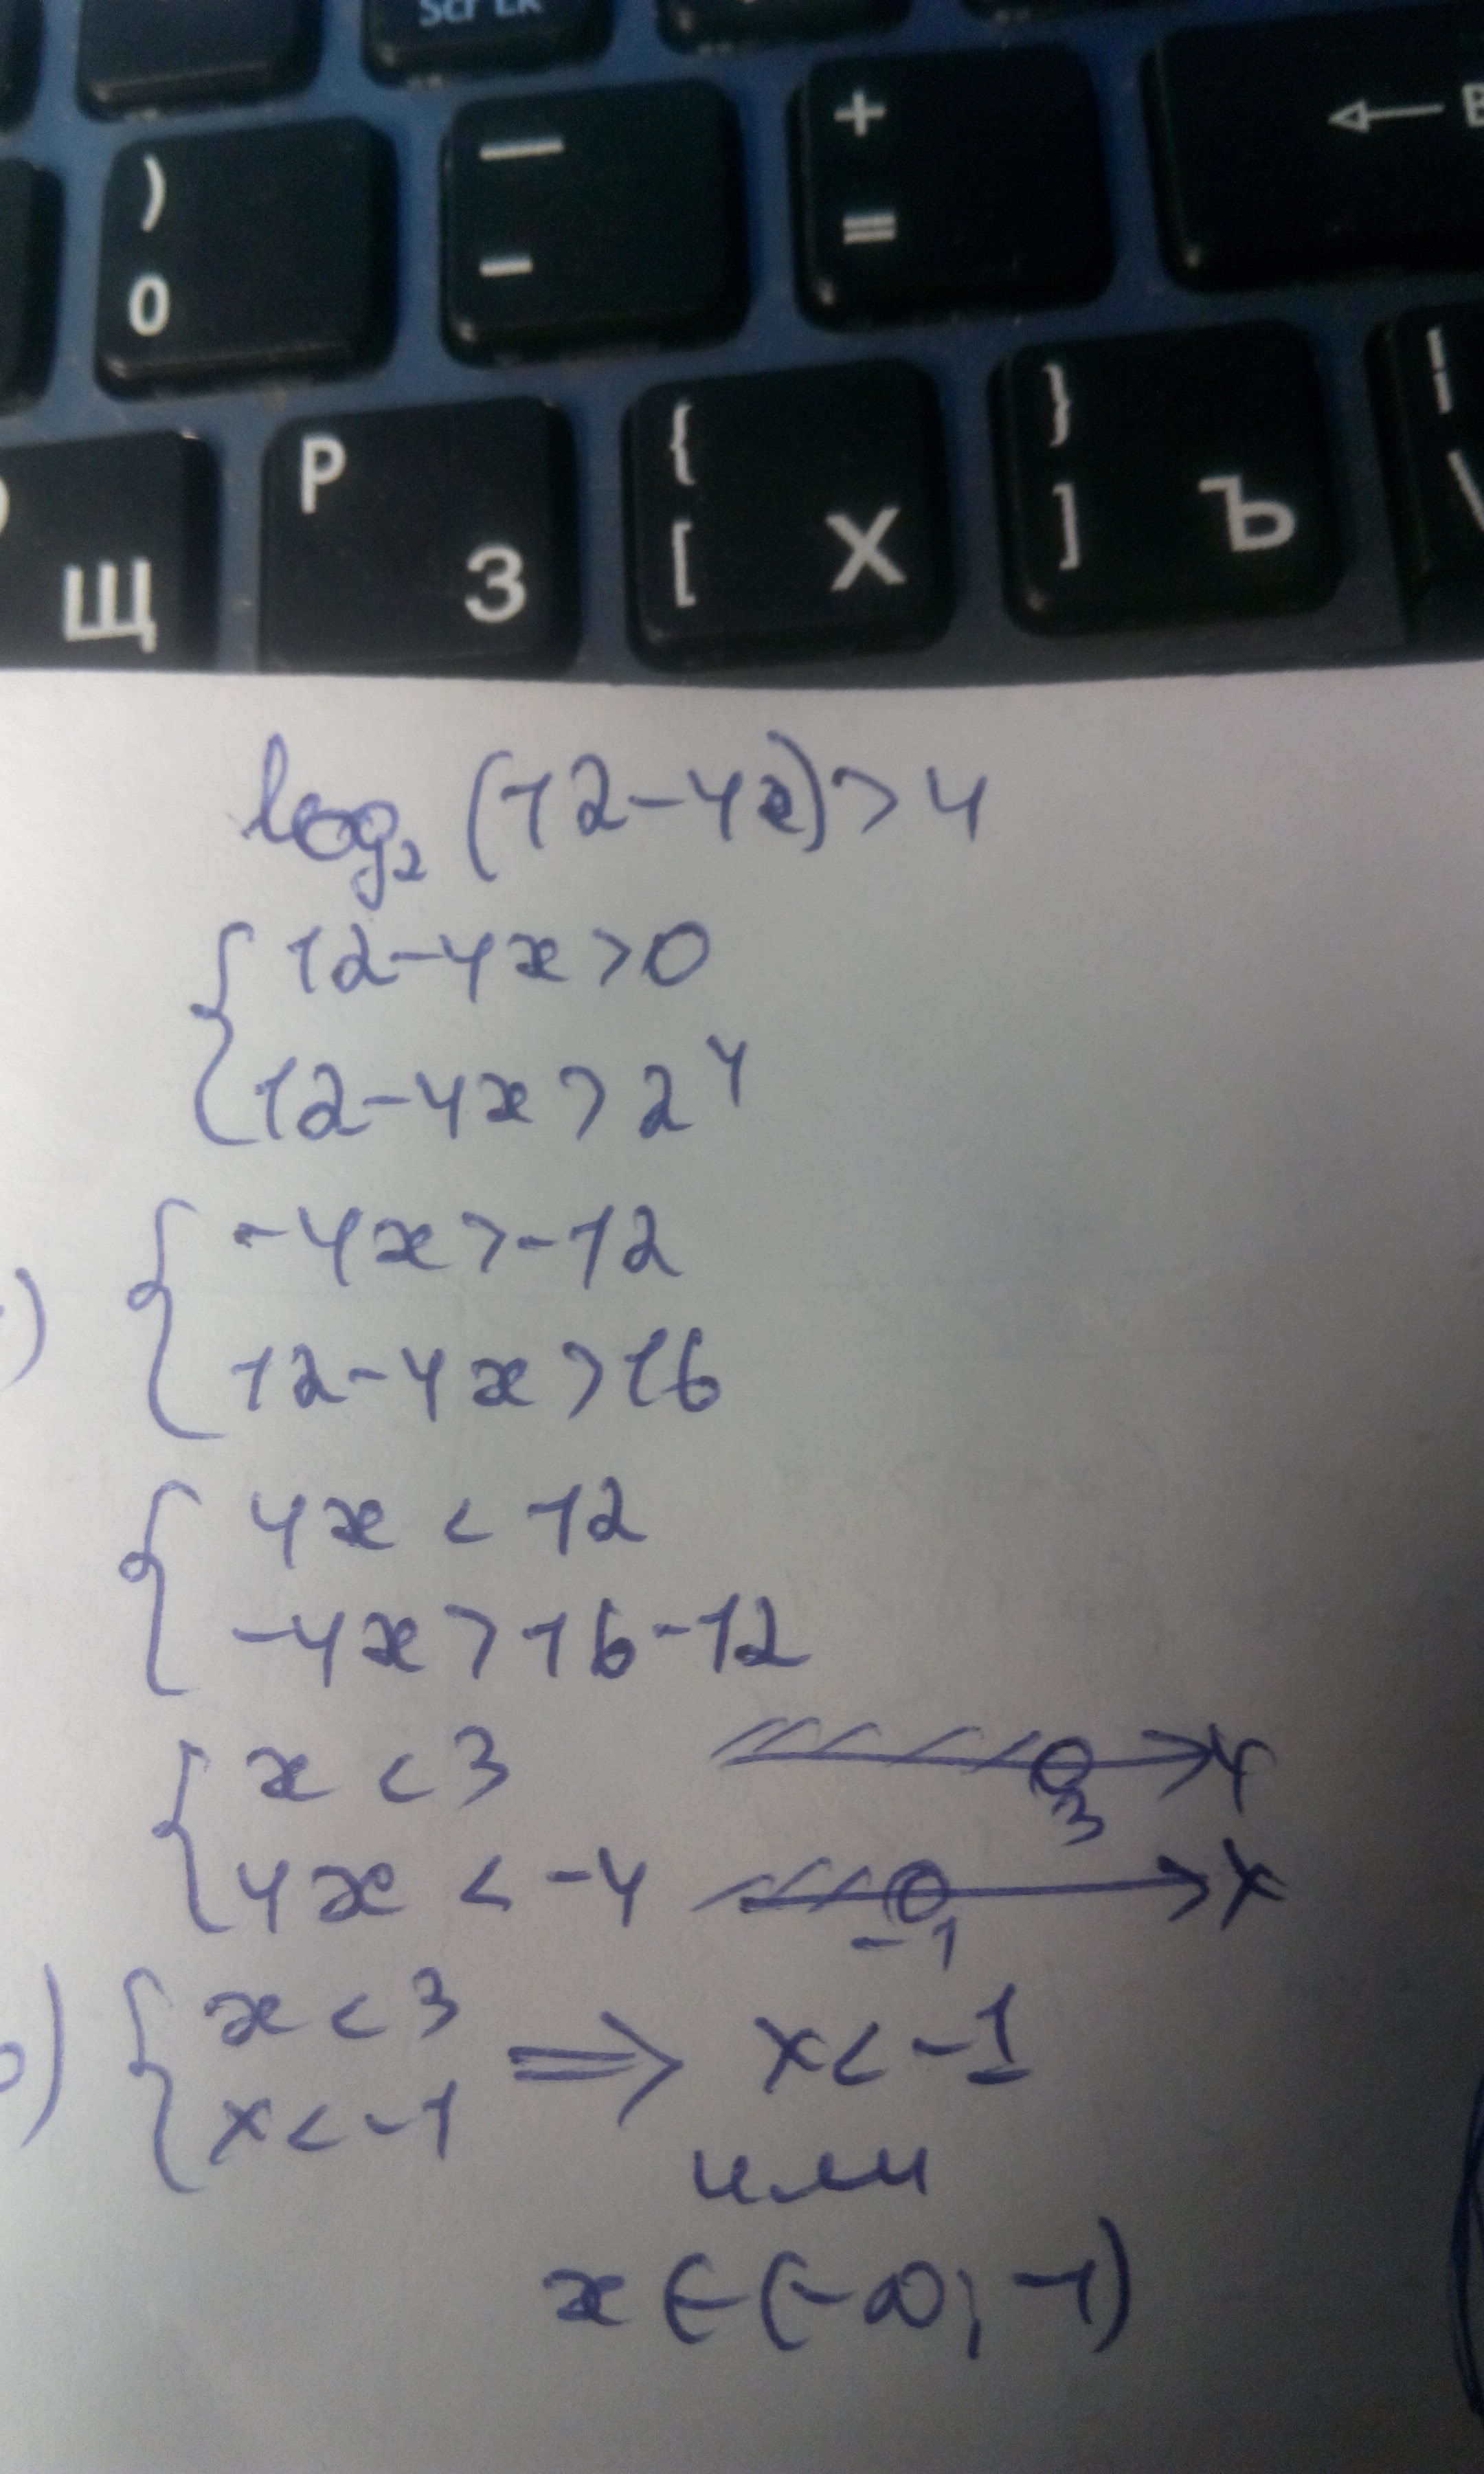 Scr LK
) — + ← B
0 - =
P { } |
Щ З [ Х ] Ъ \
log₂ (12-4x) > 4
{ 12-4x > 0
12-4x > 2⁴
{ -4x > -12
) 12-4x > 16
{ 4x < 12
-4x > 16-12
{ x < 3 3
4x < -4 -1 x
) { x < 3 ⇒ x < -1
x < -1
или
x ∈ (-∞; -1)